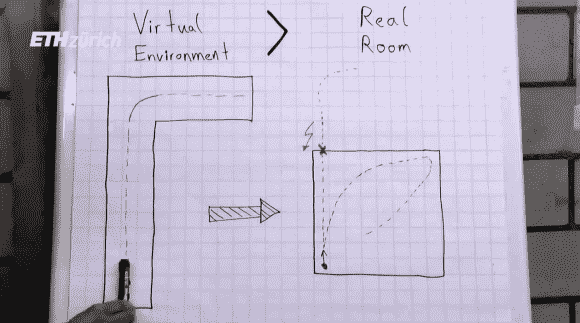 ETH zürich
Virtual
Environment
>
Real
Room